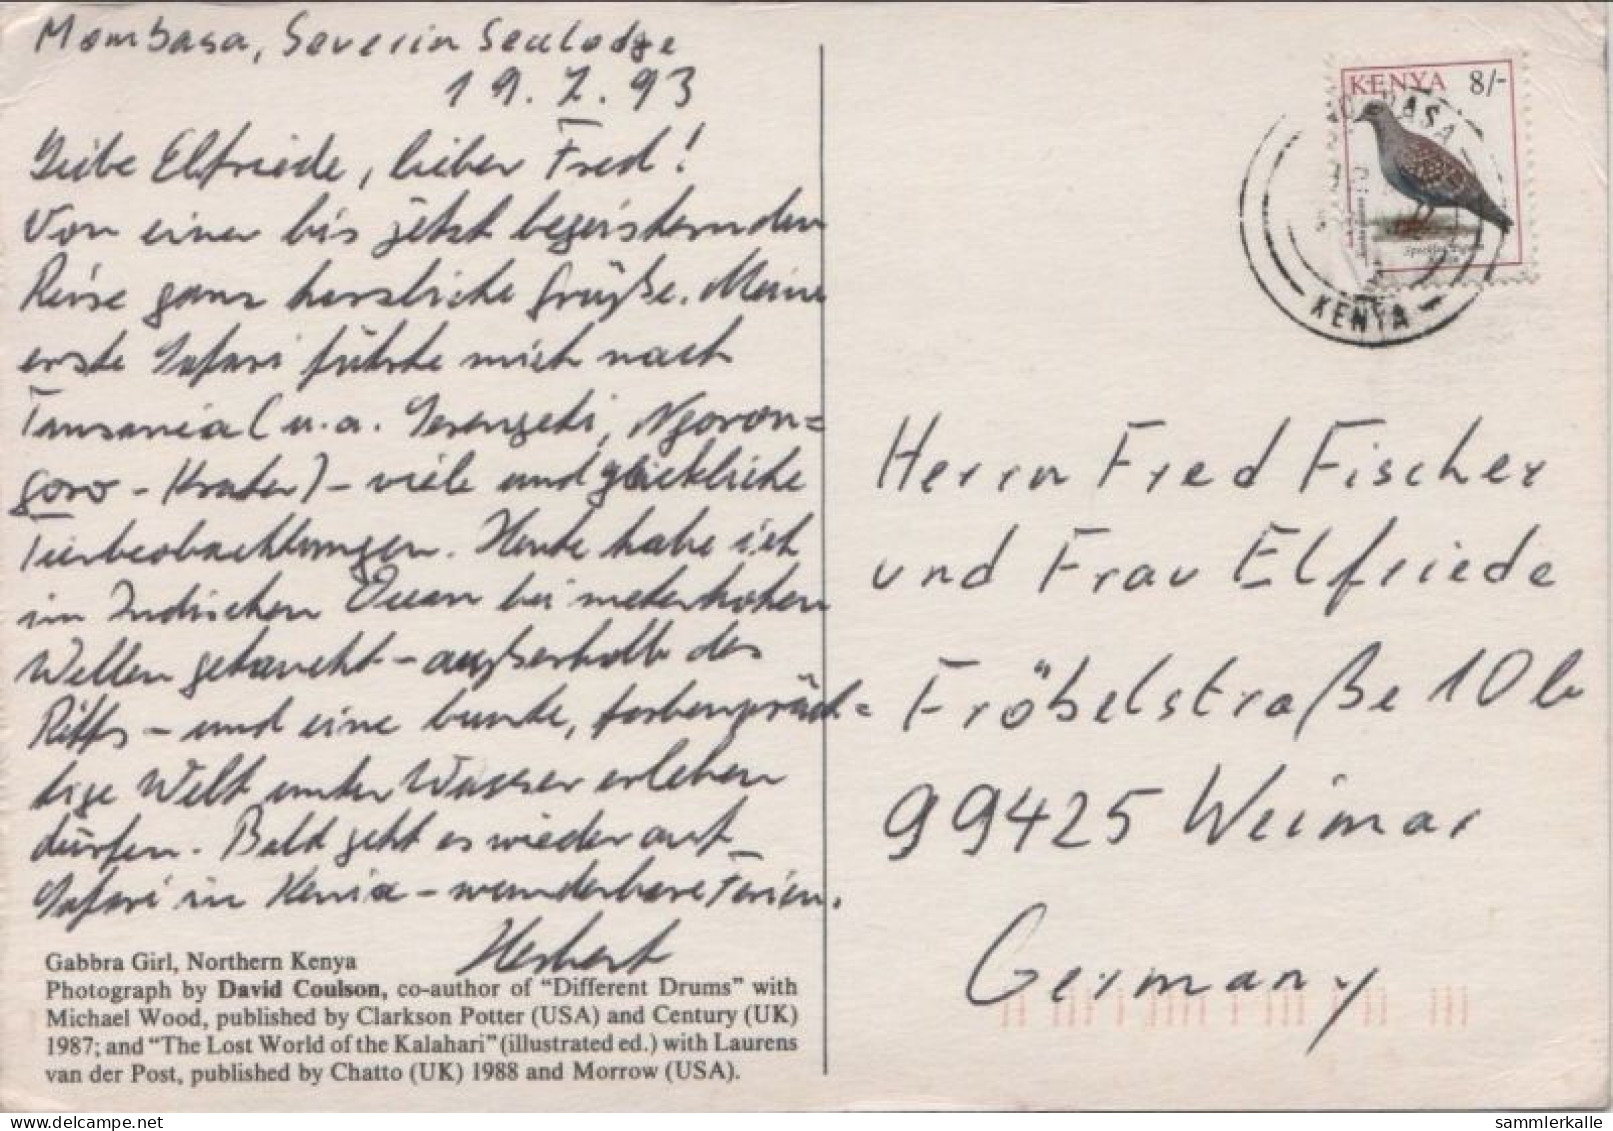 Mombasa, Severin Sealodge
19.7.93
Liebe Elfriede, lieber Fred!
Von einer bis jetzt begeisternden
Reise ganz herzliche Grüße. Meine
erste Safari führte mich nach
Tansania (u.a. Serengeti, Ngoron=
goro-Krater) - viele und glückliche
Tierbeobachtungen. Heute habe ich
im Indischen Ozean bei meterhohen
Wellen getaucht - außerhalb des
Riffs - und eine bunte, farbenpräch=
tige Welt unter Wasser erleben
dürfen. Bald geht es wieder auf
Safari in Kenia - wunderbare Ferien.
Herbert
Gabbra Girl, Northern Kenya
Photograph by David Coulson, co-author of “Different Drums” with
Michael Wood, published by Clarkson Potter (USA) and Century (UK)
1987; and “The Lost World of the Kalahari” (illustrated ed.) with Laurens
van der Post, published by Chatto (UK) 1988 and Morrow (USA).
KENYA 8/-
KENYA
Herrn Fred Fischer
und Frau Elfriede
Fröbelstraße 10b
99425 Weimar
Germany
sammlerkalle